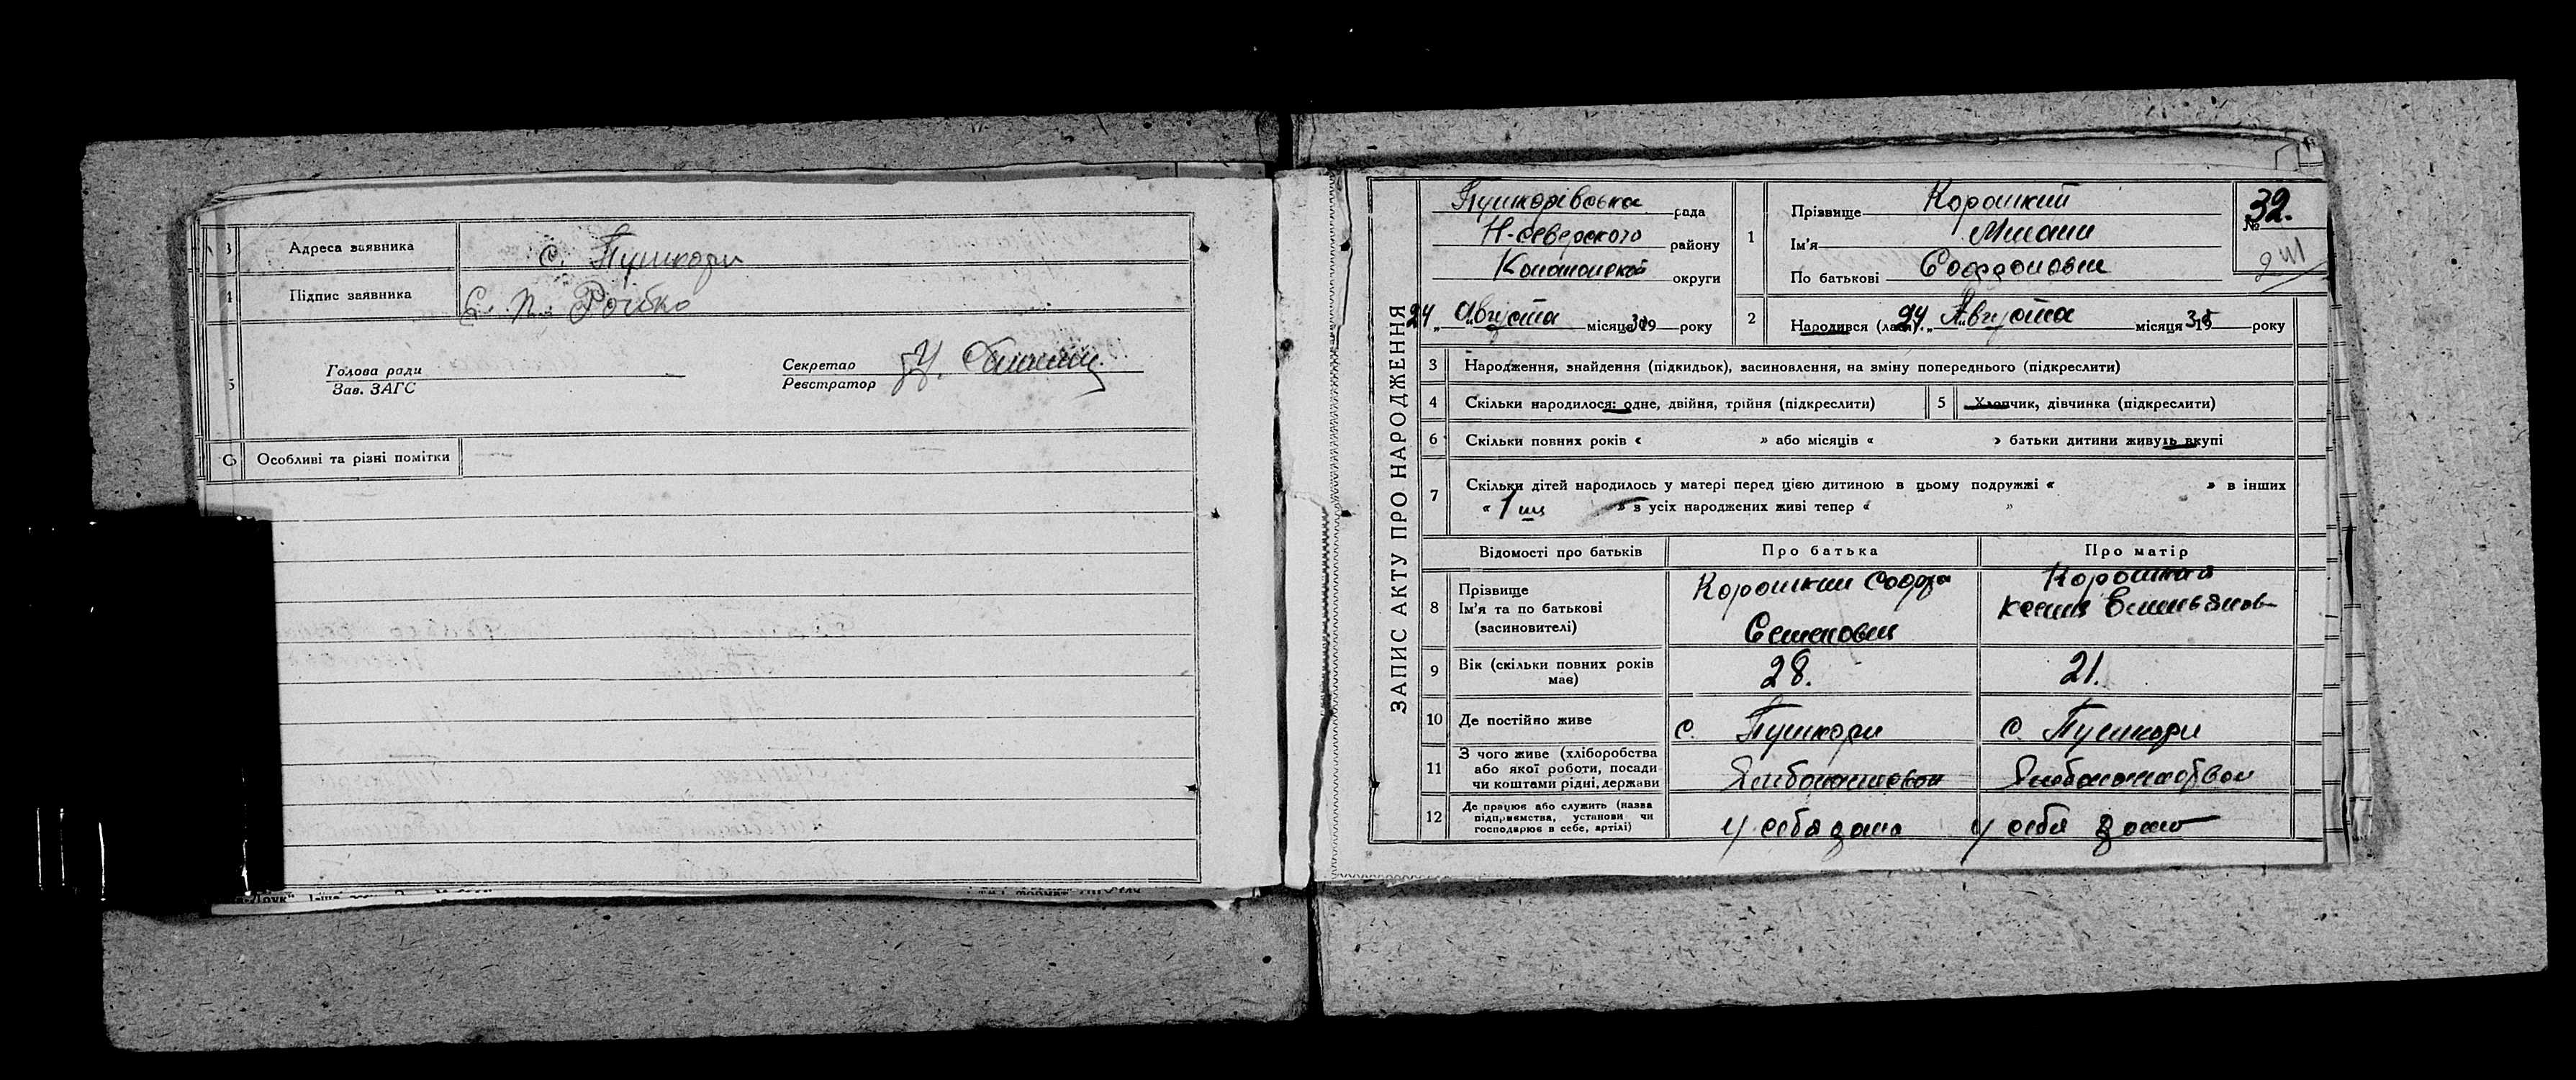 3 Адреса заявника с. Пушкари
4 Підпис заявника
5 Голова ради
Зав. ЗАГС
Секретар
Реєстратор
6 Особливі та різні помітки
ЗАПИС АКТУ ПРО НАРОДЖЕННЯ
Пушкарівська рада
Н-северского району
Конотопской округи
24 „ Августа місяця 19 року
1 Прізвище Короткий
Ім'я
По батькові
№ 32.
2 Народився (лася) 24 „ Августа місяця 19 року
3 Народження, знайдення (підкидьок), васиновлення, на зміну попереднього (підкреслити)
4 Скільки народилося: одне, двійня, трійня (підкреслити)
5 Хлопчик, дівчинка (підкреслити)
6 Скільки повних років « » або місяців « » батьки дитини живуть вкупі
7 Скільки дітей народилось у матері перед цією дитиною в цьому подружжі « » в інших
« 1 » з усіх народжених живі тепер « »
Відомості про батьків Про батька Про матір
8 Прізвище
Ім'я та по батькові
(засиновителі)
Короткий
Семенович
Короткая
9 Вік (скільки повних років
має)
28. 21.
10 Де постійно живе с. Пушкари с. Пушкари
11 З чого живе (хліборобства
або якої роботи, посади
чи коштами рідні, держави
12 Де працює або служить (назва
підприємства, установи чи
господарює в себе, артілі)
у себя дома у себя дома